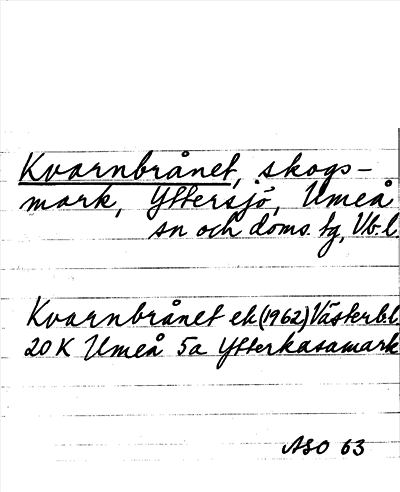 Kvarnbrånet, skogs-
mark, Yttersjö, Umeå
sn och doms. tg, Vb.l.
Kvarnbrånet ek (1962) Västerb.l.
20 K Umeå 5a Ytterkasamark
ASO 63